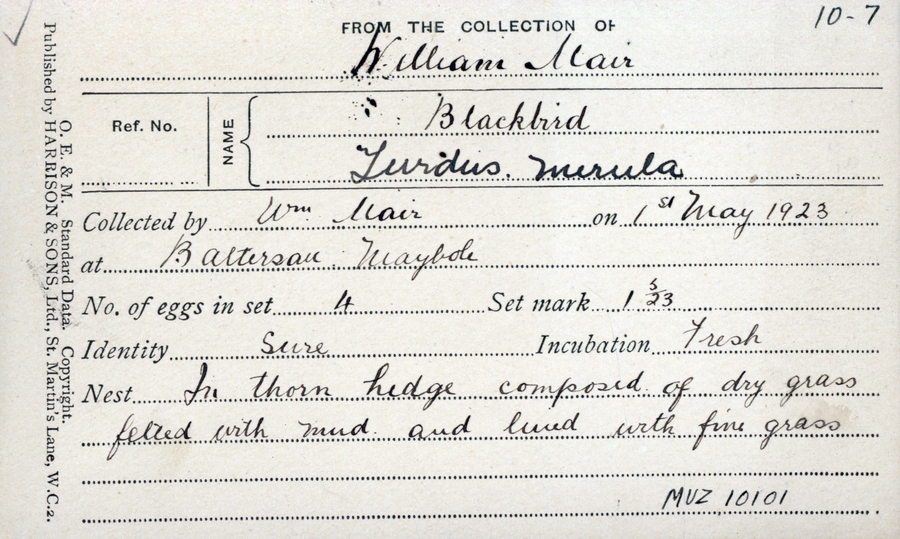 10-7
FROM THE COLLECTION OF
William Mair
Ref. No.
NAME
Blackbird
Turdus. merula
Collected by Wm Mair on 1st May 1923
at Baltersan Maybole
No. of eggs in set 4 Set mark 1 5/23
Identity Sure Incubation Fresh
Nest In thorn hedge composed of dry grass
felted with mud and lined with fine grass
MUZ 10101
O. E. & M. Standard Data. Copyright.
Published by HARRISON & SONS, Ltd., St. Martin's Lane, W.C.2.